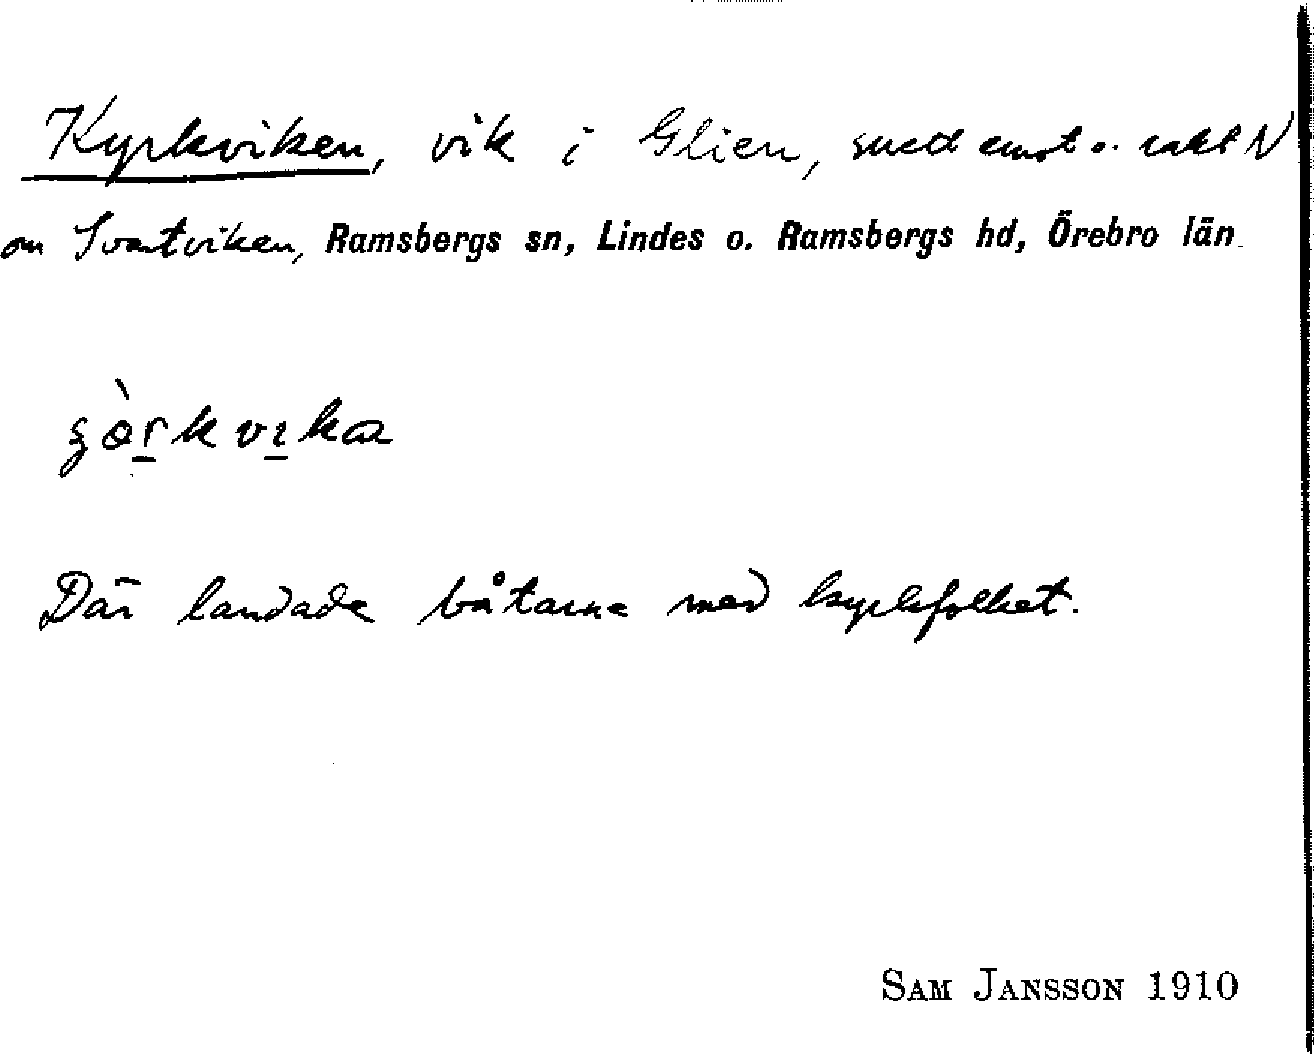 Kyrkviken, vik i Glien, snett emot o. rakt N
om Svartviken, Ramsbergs sn, Lindes o. Ramsbergs hd, Örebro län
Där landade båtarna med kyrkfolket.
SAM JANSSON 1910